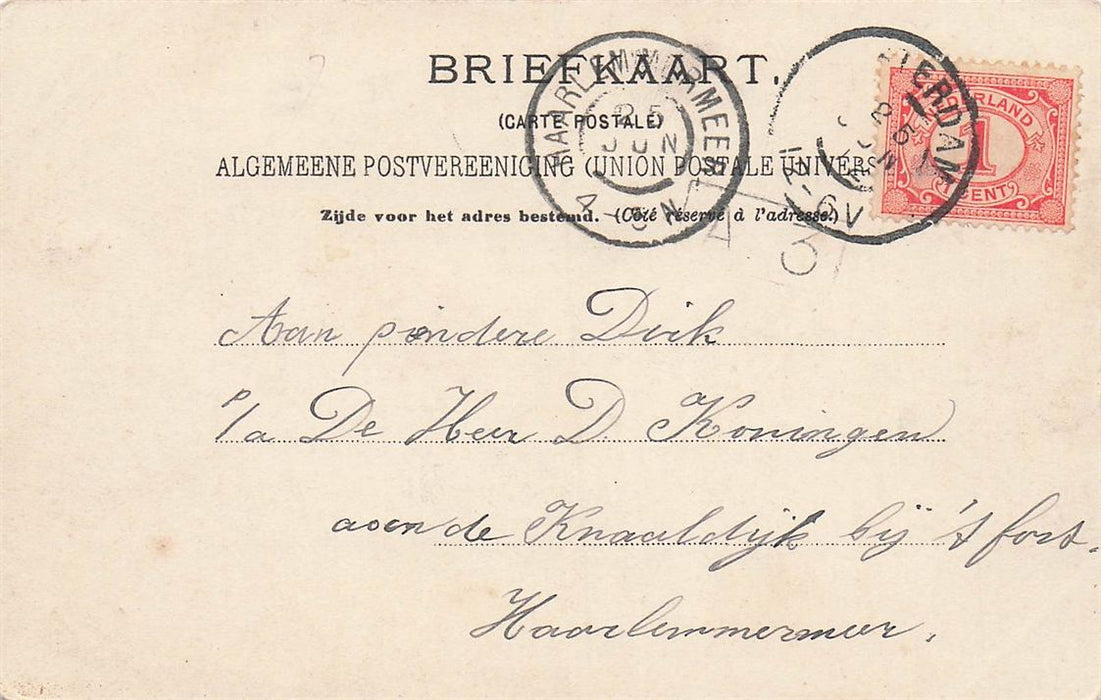 BRIEFKAART.
(CARTE POSTALE)
ALGEMEENE POSTVEREENIGING (UNION POSTALE UNIVERS
Zijde voor het adres bestemd. (Côté réservé à l'adresse.)
HAARLEMMERMEER
25
JUN
4-5N
STERDAM
6V
ERLAND
1
CENT
Aan Dirk
p/a De Heer D. Koningen
aan de Knaaldijk bij 't fort.
Haarlemmermeer.